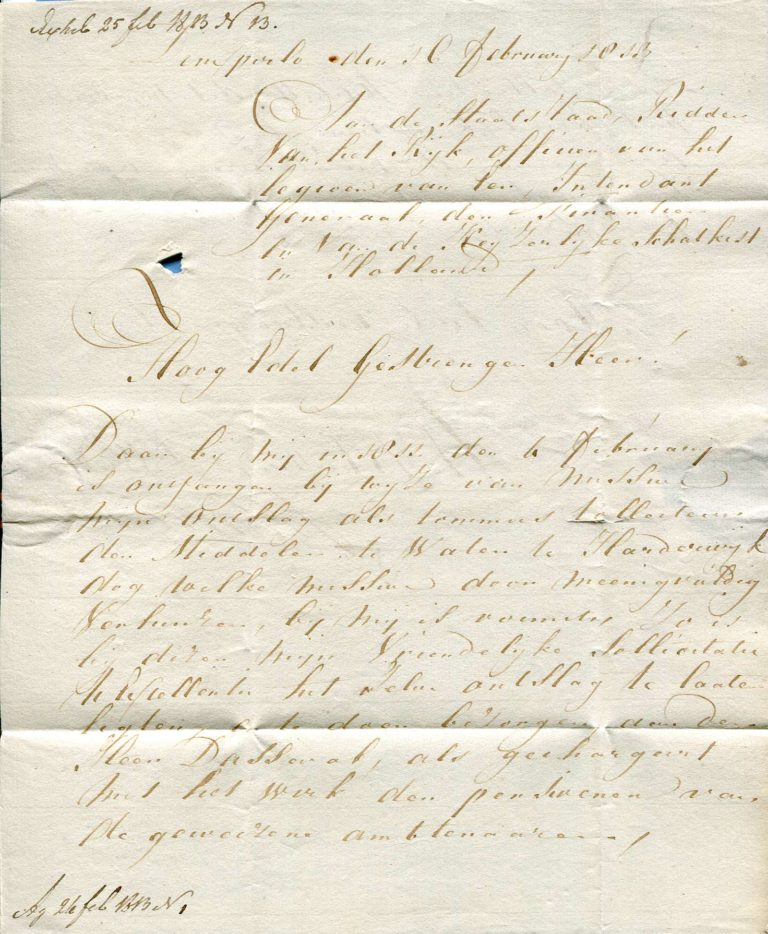 Exhib 25 feb 1813 N 13.
Emperlo den 16 februarij 1813
Aan de Staatsraad, Ridder
van het Rijk, officier van het
legioen van Eer, Intendant
Generaal, der Finantien
en van de Keyzerlyke Schatkist
in Holland,
Hoog Edel Gestrengen Heer!
Daar bij mij in 1811 den 6 februarij
is ontfangen bij wyze van missive
mijn ontslag als commies collecteur
der Middelen te Water te Harderwijk
dog welke missive door meenigvuldig
verhuizen, bij mij is
Zo is
bij dezen mijn vriendelyke sollicitatie
U Excellentie het zelve ontslag te laaten
ligten, & te doen bezorgen aan den
Heer Dasseval, als gechargeert
met het werk der pensioenen van
de gewezene ambtenaaren,
Ag 26 feb 1813 N 1